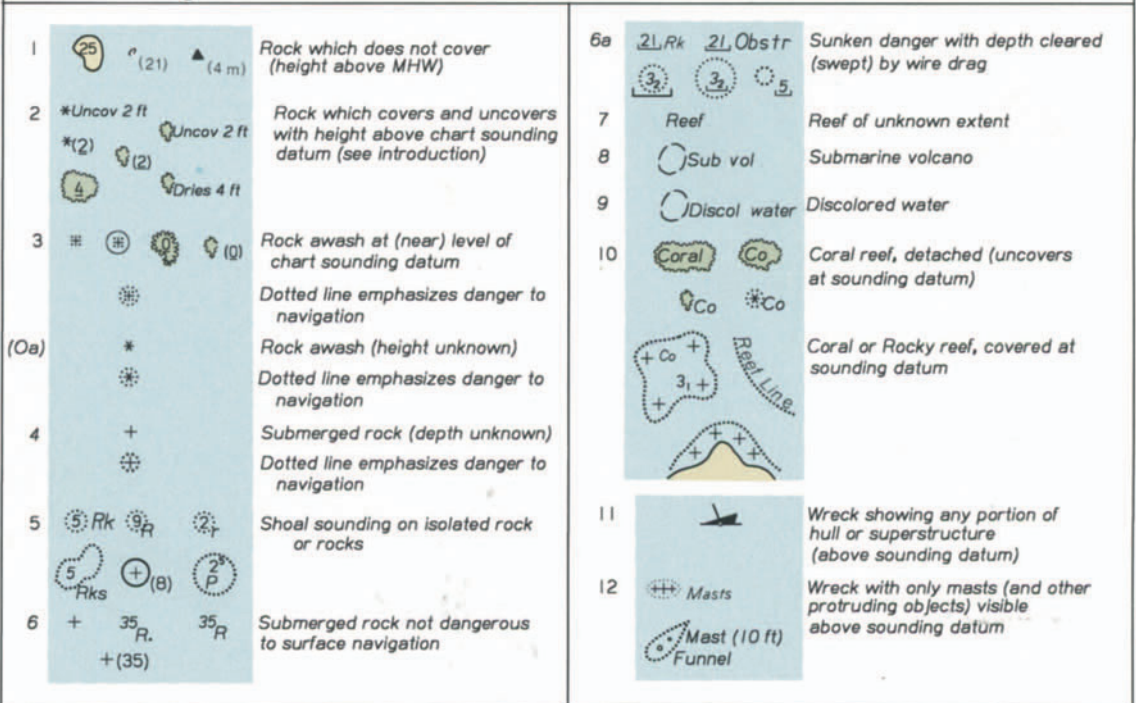 1 25 (21) (4 m) Rock which does not cover
(height above MHW)
2 *Uncov 2 ft Rock which covers and uncovers
Uncov 2 ft with height above chart sounding
*(2) (2) datum (see introduction)
4 Dries 4 ft
3 0 (0) Rock awash at (near) level of
chart sounding datum
Dotted line emphasizes danger to
navigation
(Oa) * Rock awash (height unknown)
Dotted line emphasizes danger to
navigation
4 + Submerged rock (depth unknown)
Dotted line emphasizes danger to
navigation
5 5 Rk 9 R 2 r Shoal sounding on isolated rock
or rocks
5 Rks + (8) 2⁵ P
6 + 35 R. 35 R Submerged rock not dangerous
to surface navigation
+(35)
6a 21 Rk 21 Obstr Sunken danger with depth cleared
(swept) by wire drag
3₂ 3₂ 5
7 Reef Reef of unknown extent
8 Sub vol Submarine volcano
9 Discol water Discolored water
10 Coral Co Coral reef, detached (uncovers
at sounding datum)
Co *Co
+ Co + 3₁ + + Reef Line Coral or Rocky reef, covered at
sounding datum
+ + + +
11 Wreck showing any portion of
hull or superstructure
(above sounding datum)
12 Masts Wreck with only masts (and other
protruding objects) visible
above sounding datum
Mast (10 ft)
Funnel